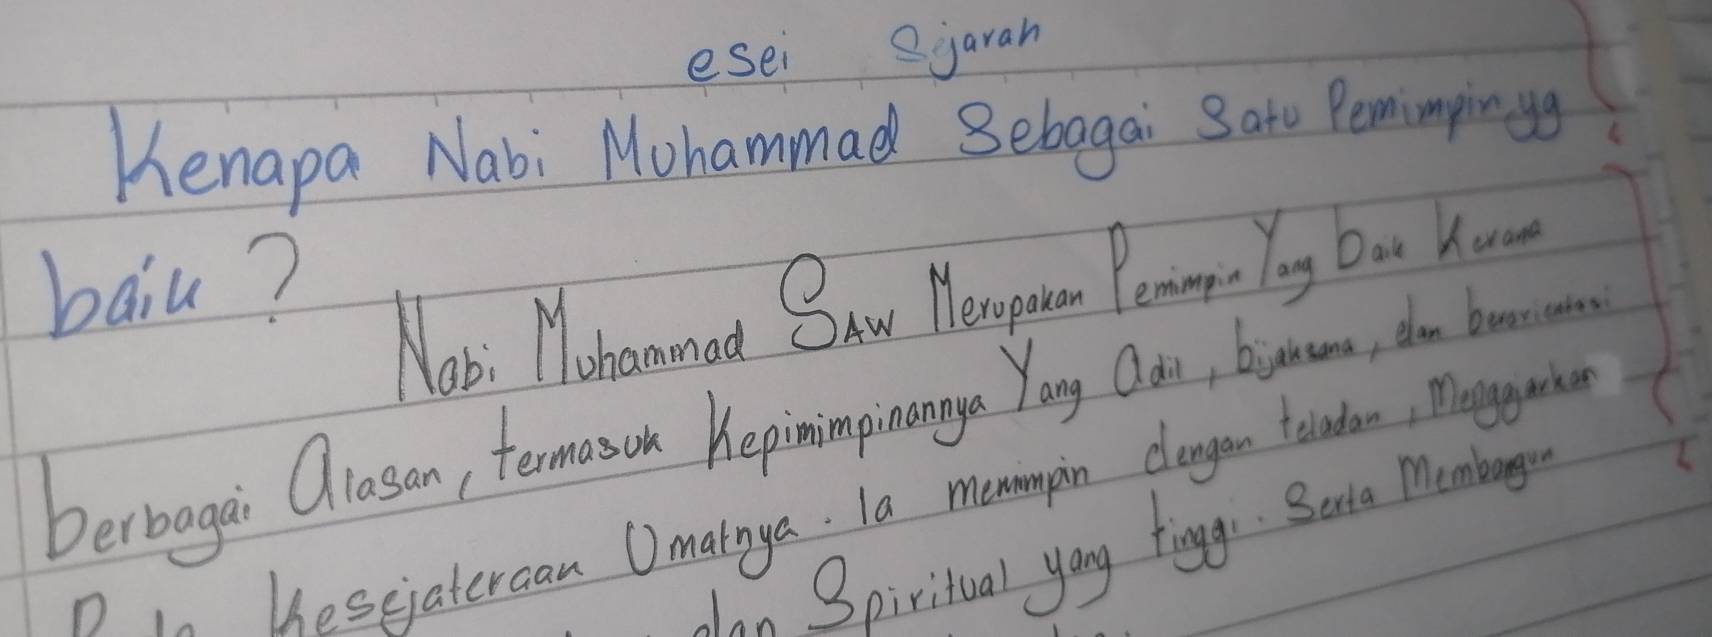 esei Sejarah
Kenapa Nabi Muhammad Sebagai Satu Pemimpin yg
baik?
Nabi Muhammad SAW Merupakan Pemimpin Yang baik Kerana
berbagai alasan, termasuk Kepimimpinannya Yang adil, bijaksana, dan berorientasi
Pada Kesejateraan Umatnya. Ia memimpin dengan teladan, Mengajarkan
dan Spiritual yang tinggi. Serta Membangun